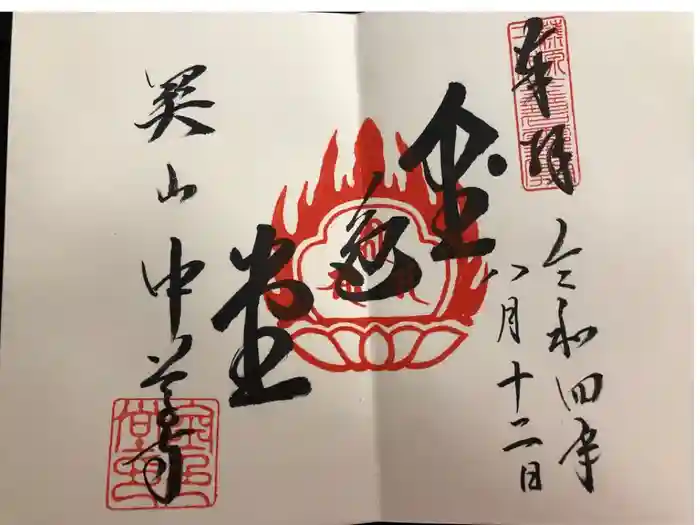 奉拝
令和四年
八月十二日
金色堂
関山 中尊寺